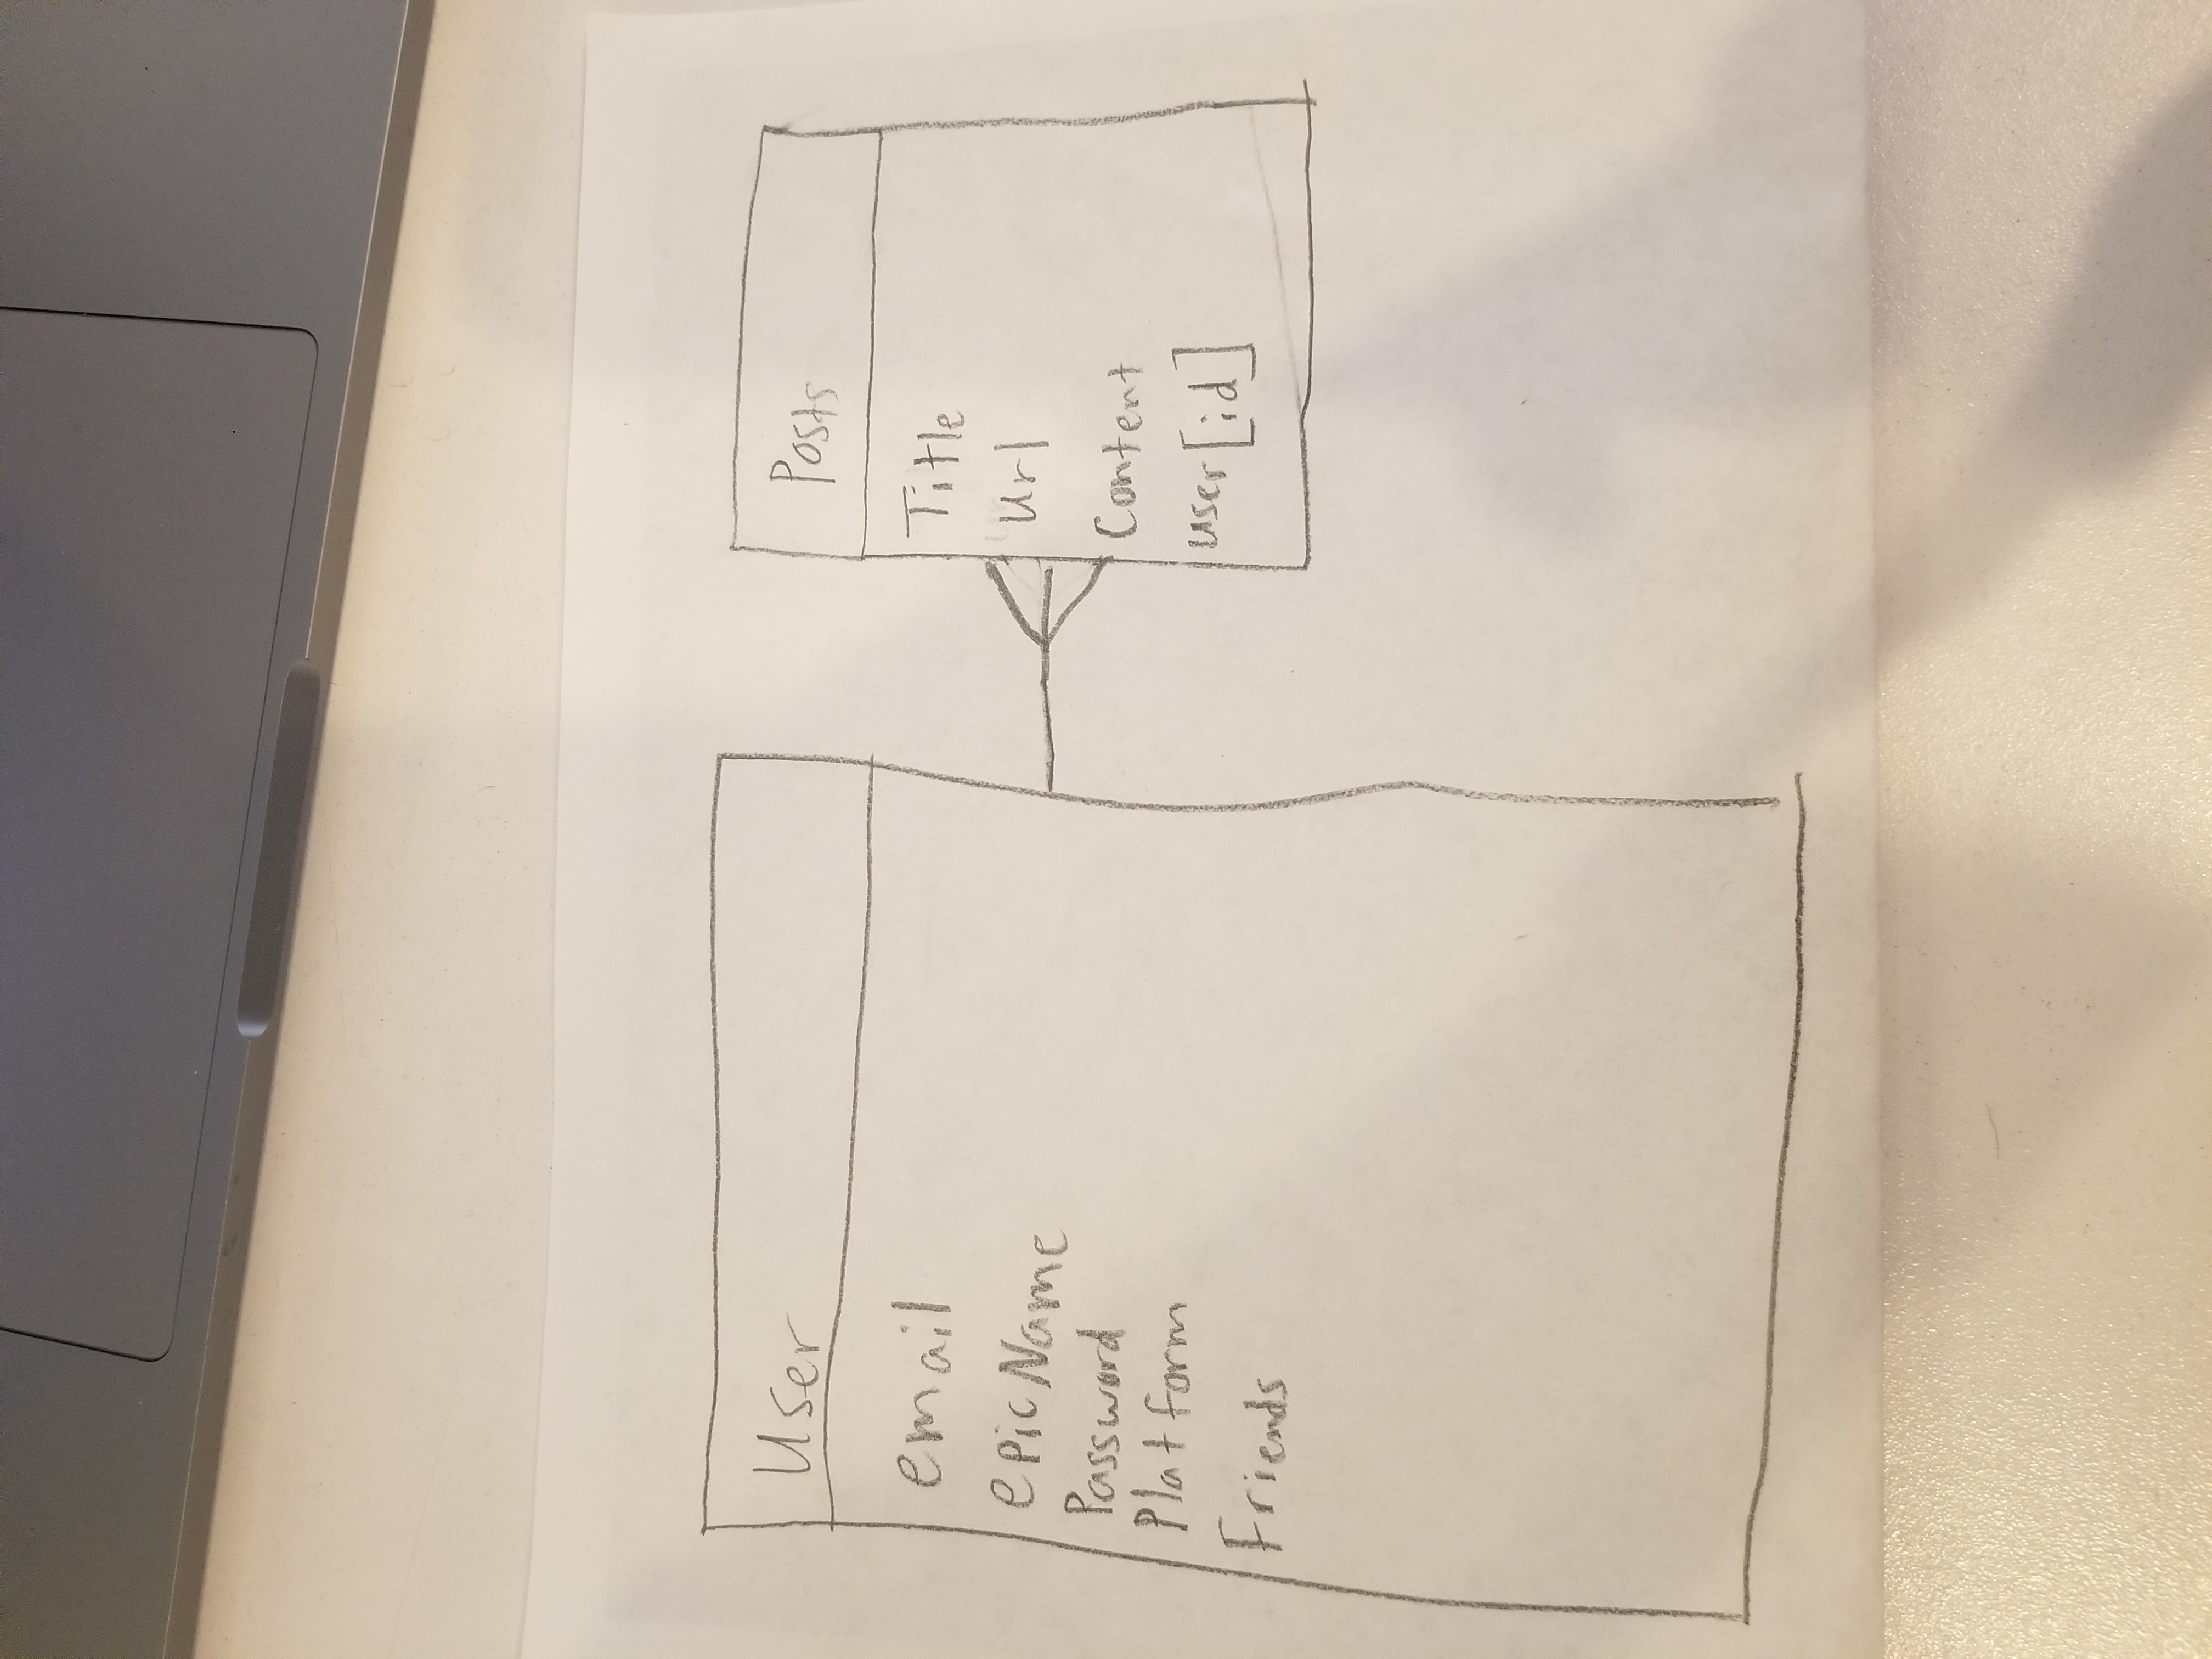 User
email
epicName
Password
Platform
Friends
Posts
Title
Url
Content
user[id]